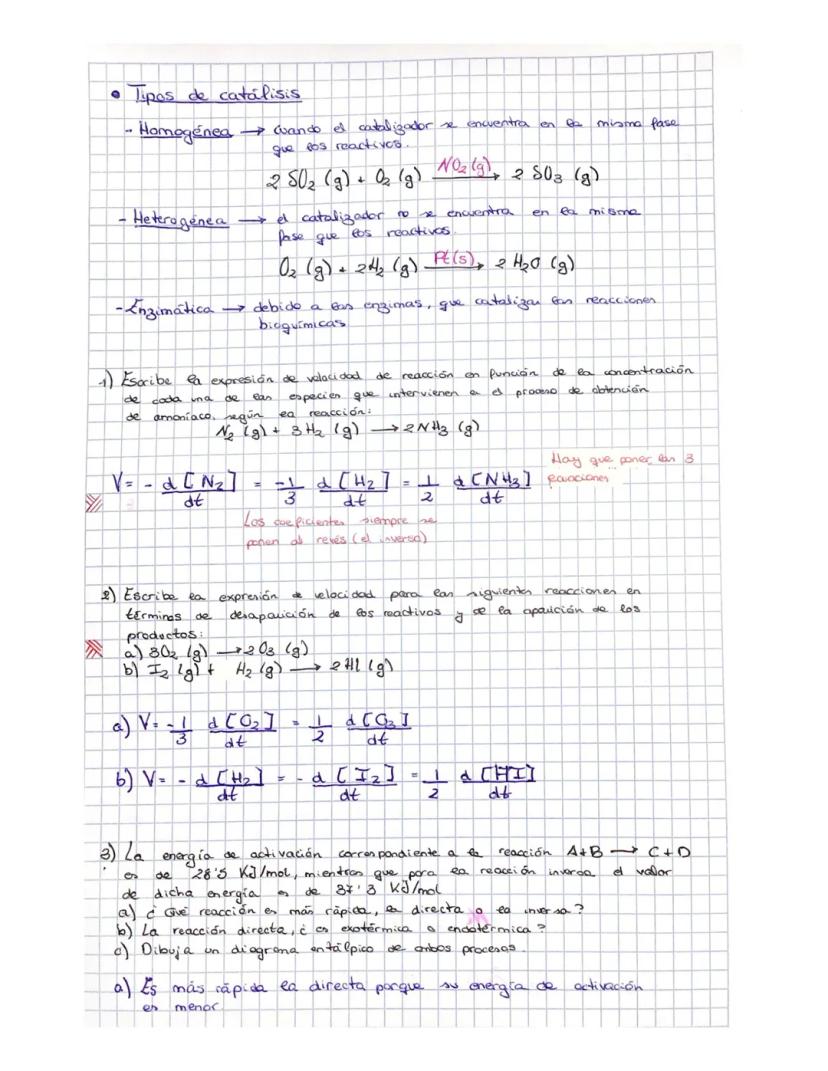 • Tipos de catálisis
- Homogénea → cuando el catalizador se encuentra en la misma fase
que los reactivos.
2 SO₂ (g) + O₂ (g) —NO₂ (g)→ 2 SO₃ (g)
- Heterogénea → el catalizador no se encuentra en la misma
fase que los reactivos.
O₂ (g) + 2H₂ (g) —Pt(s)→ 2 H₂O (g)
- Enzimática → debido a las enzimas, que catalizan las reacciones
bioquímicas
1) Escribe la expresión de velocidad de reacción en función de la concentración
de cada una de las especies que intervienen en el proceso de obtención
de amoníaco, según la reacción:
N₂ (g) + 3 H₂ (g) → 2 NH₃ (g)
V = - d[N₂]/dt = -1/3 d[H₂]/dt = 1/2 d[NH₃]/dt
Hay que poner las 3
ecuaciones
Los coeficientes siempre se
ponen al revés (el inverso)
2) Escribe la expresión de velocidad para las siguientes reacciones en
términos de desaparición de los reactivos y de la aparición de los
productos:
a) 3O₂ (g) → 2 O₃ (g)
b) I₂ (g) + H₂ (g) → 2 HI (g)
a) V = -1/3 d[O₂]/dt = 1/2 d[O₃]/dt
b) V = - d[H₂]/dt = - d[I₂]/dt = 1/2 d[HI]/dt
3) La energía de activación correspondiente a la reacción A+B → C+D
es de 28'5 KJ/mol, mientras que para la reacción inversa el valor
de dicha energía es de 37'3 KJ/mol
a) ¿Qué reacción es más rápida, la directa o la inversa?
b) La reacción directa, ¿es exotérmica o endotérmica?
c) Dibuja un diagrama entálpico de ambos procesos.
a) Es más rápida la directa porque su energía de activación
es menor